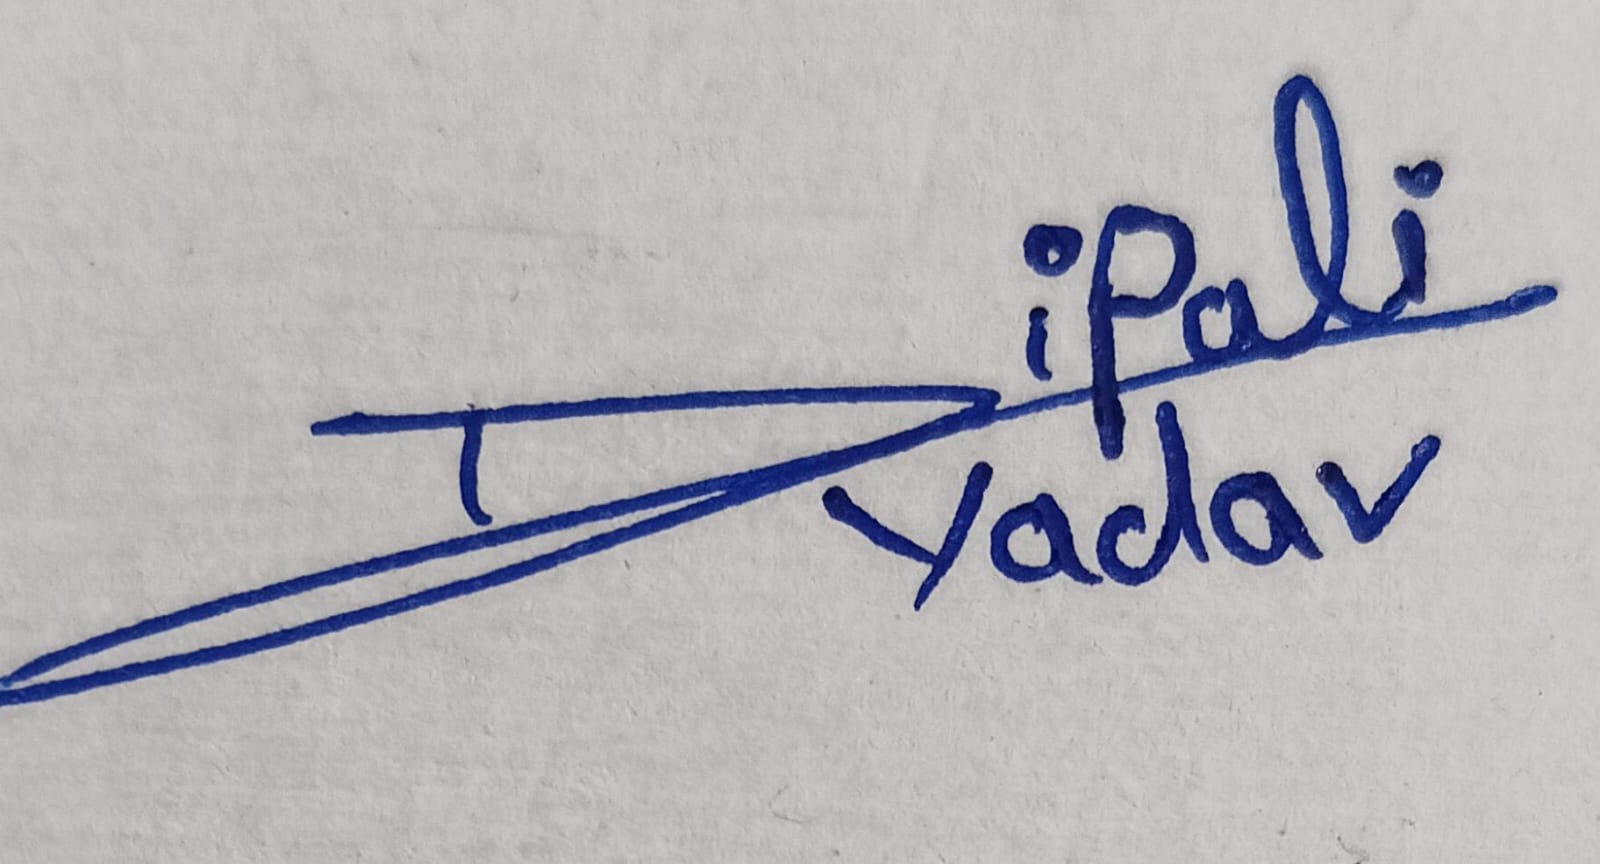 Dipali
Yadav